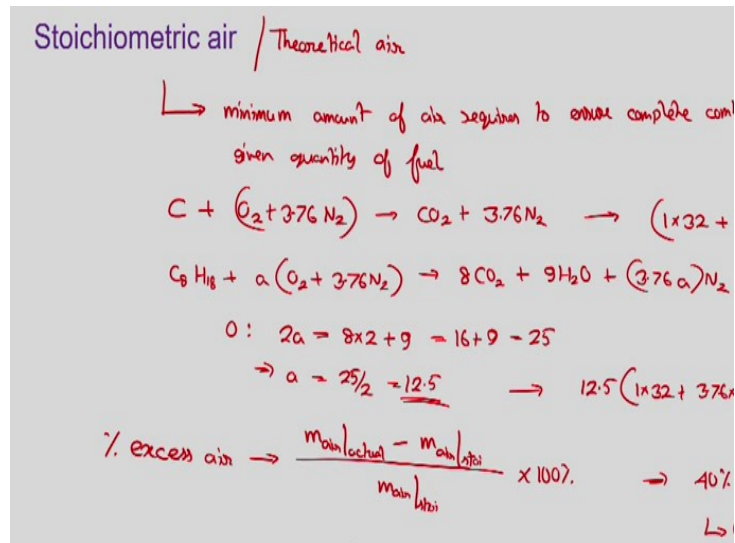 Stoichiometric air / Theoretical air
↳ minimum amount of air requires to ensure complete com
given quantity of fuel
C + (O₂ + 3.76 N₂) → CO₂ + 3.76N₂ → (1×32 +
C₈ H₁₈ + a (O₂ + 3.76N₂) → 8CO₂ + 9H₂O + (3.76a)N₂
O : 2a = 8×2 + 9 = 16+9 = 25
→ a = 25/2 = 12.5 → 12.5 (1×32 + 3.76×
% excess air → (mair|actual − mair|stoi) / mair|stoi × 100% → 40%
↳